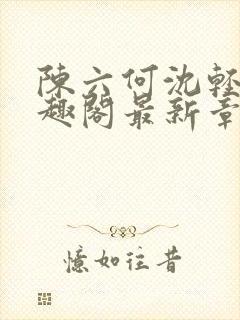 陳六何沈輕
趣閣最新章
憶如往昔